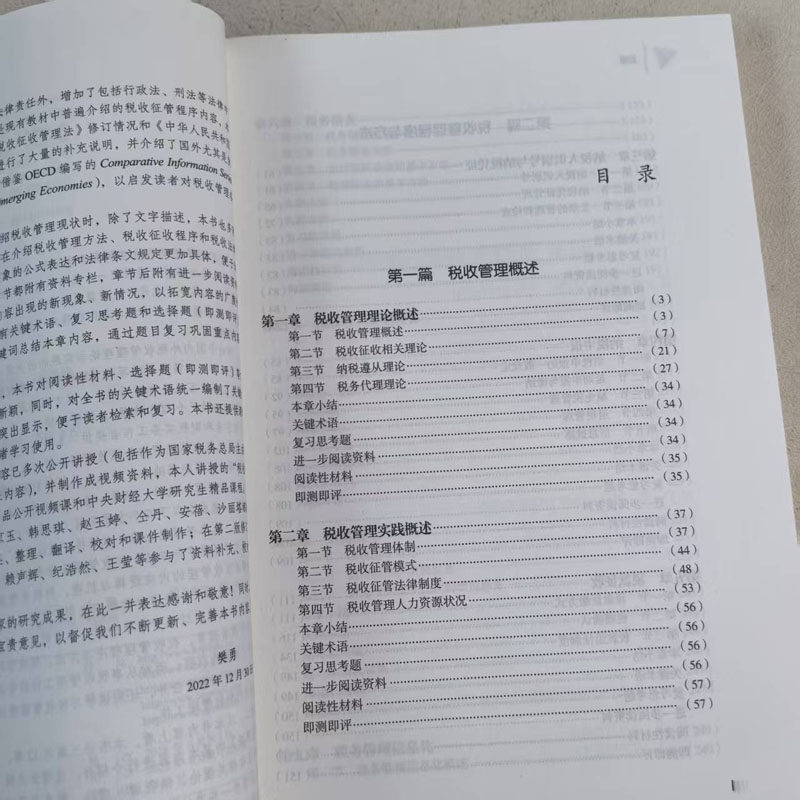 律责任外，增加了包括行政法、刑法等法律
现有教材中普遍介绍的税收征管程序内容，
税收征收管理法》修订情况和《中华人民共和国
进行了大量的补充说明，并介绍了国外尤其是
借鉴OECD编写的Comparative Information
merging Economies），以启发读者对税收管理
绍税收管理现状时，除了文字描述，本书也
在介绍税收管理方法、税收征收程序和税收法
象的公式表达和法律条文规定更加具体，便于
节都附有资料专栏，章节后附有进一步阅读资
容出现的新现象、新情况，以拓宽内容的广
有关键术语、复习思考题和选择题（即测即评
键词总结本章内容，通过题目复习巩固重点内
，本书对阅读性材料、选择题（即测即评）
新颖，同时，对全书的关键术语统一编制了关键
突出显示，便于读者检索和复习。本书还提供
者学习使用。
容已多次公开讲授（包括作为国家税务总局
内容），并制作成视频资料，本人讲授的
品公开视频课和中央财经大学研究生精品课程
玉、韩思琪、赵玉婷、仝丹、安蓓、沙丽
、整理、翻译、校对和课件制作；在第二版
赖声辉、纪浩然、王莹等参与了资料补充、
家的研究成果，在此一并表达感谢和敬意！同
宝贵意见，以督促我们不断更新、完善本书内
樊勇
2022年12月30日
目录
第一篇 税收管理概述
第一章 税收管理理论概述（3）
第一节 税收管理概述（3）
第二节 税收征收相关理论（7）
第三节 纳税遵从理论（21）
第四节 税务代理理论（27）
本章小结（34）
关键术语（34）
复习思考题（34）
进一步阅读资料（34）
阅读性材料（35）
即测即评（35）
第二章 税收管理实践概述（37）
第一节 税收管理体制（37）
第二节 税收征管模式（44）
第三节 税收征管法律制度（48）
第四节 税收管理人力资源状况（53）
本章小结（56）
关键术语（56）
复习思考题（56）
进一步阅读资料（56）
阅读性材料（57）
即测即评（57）